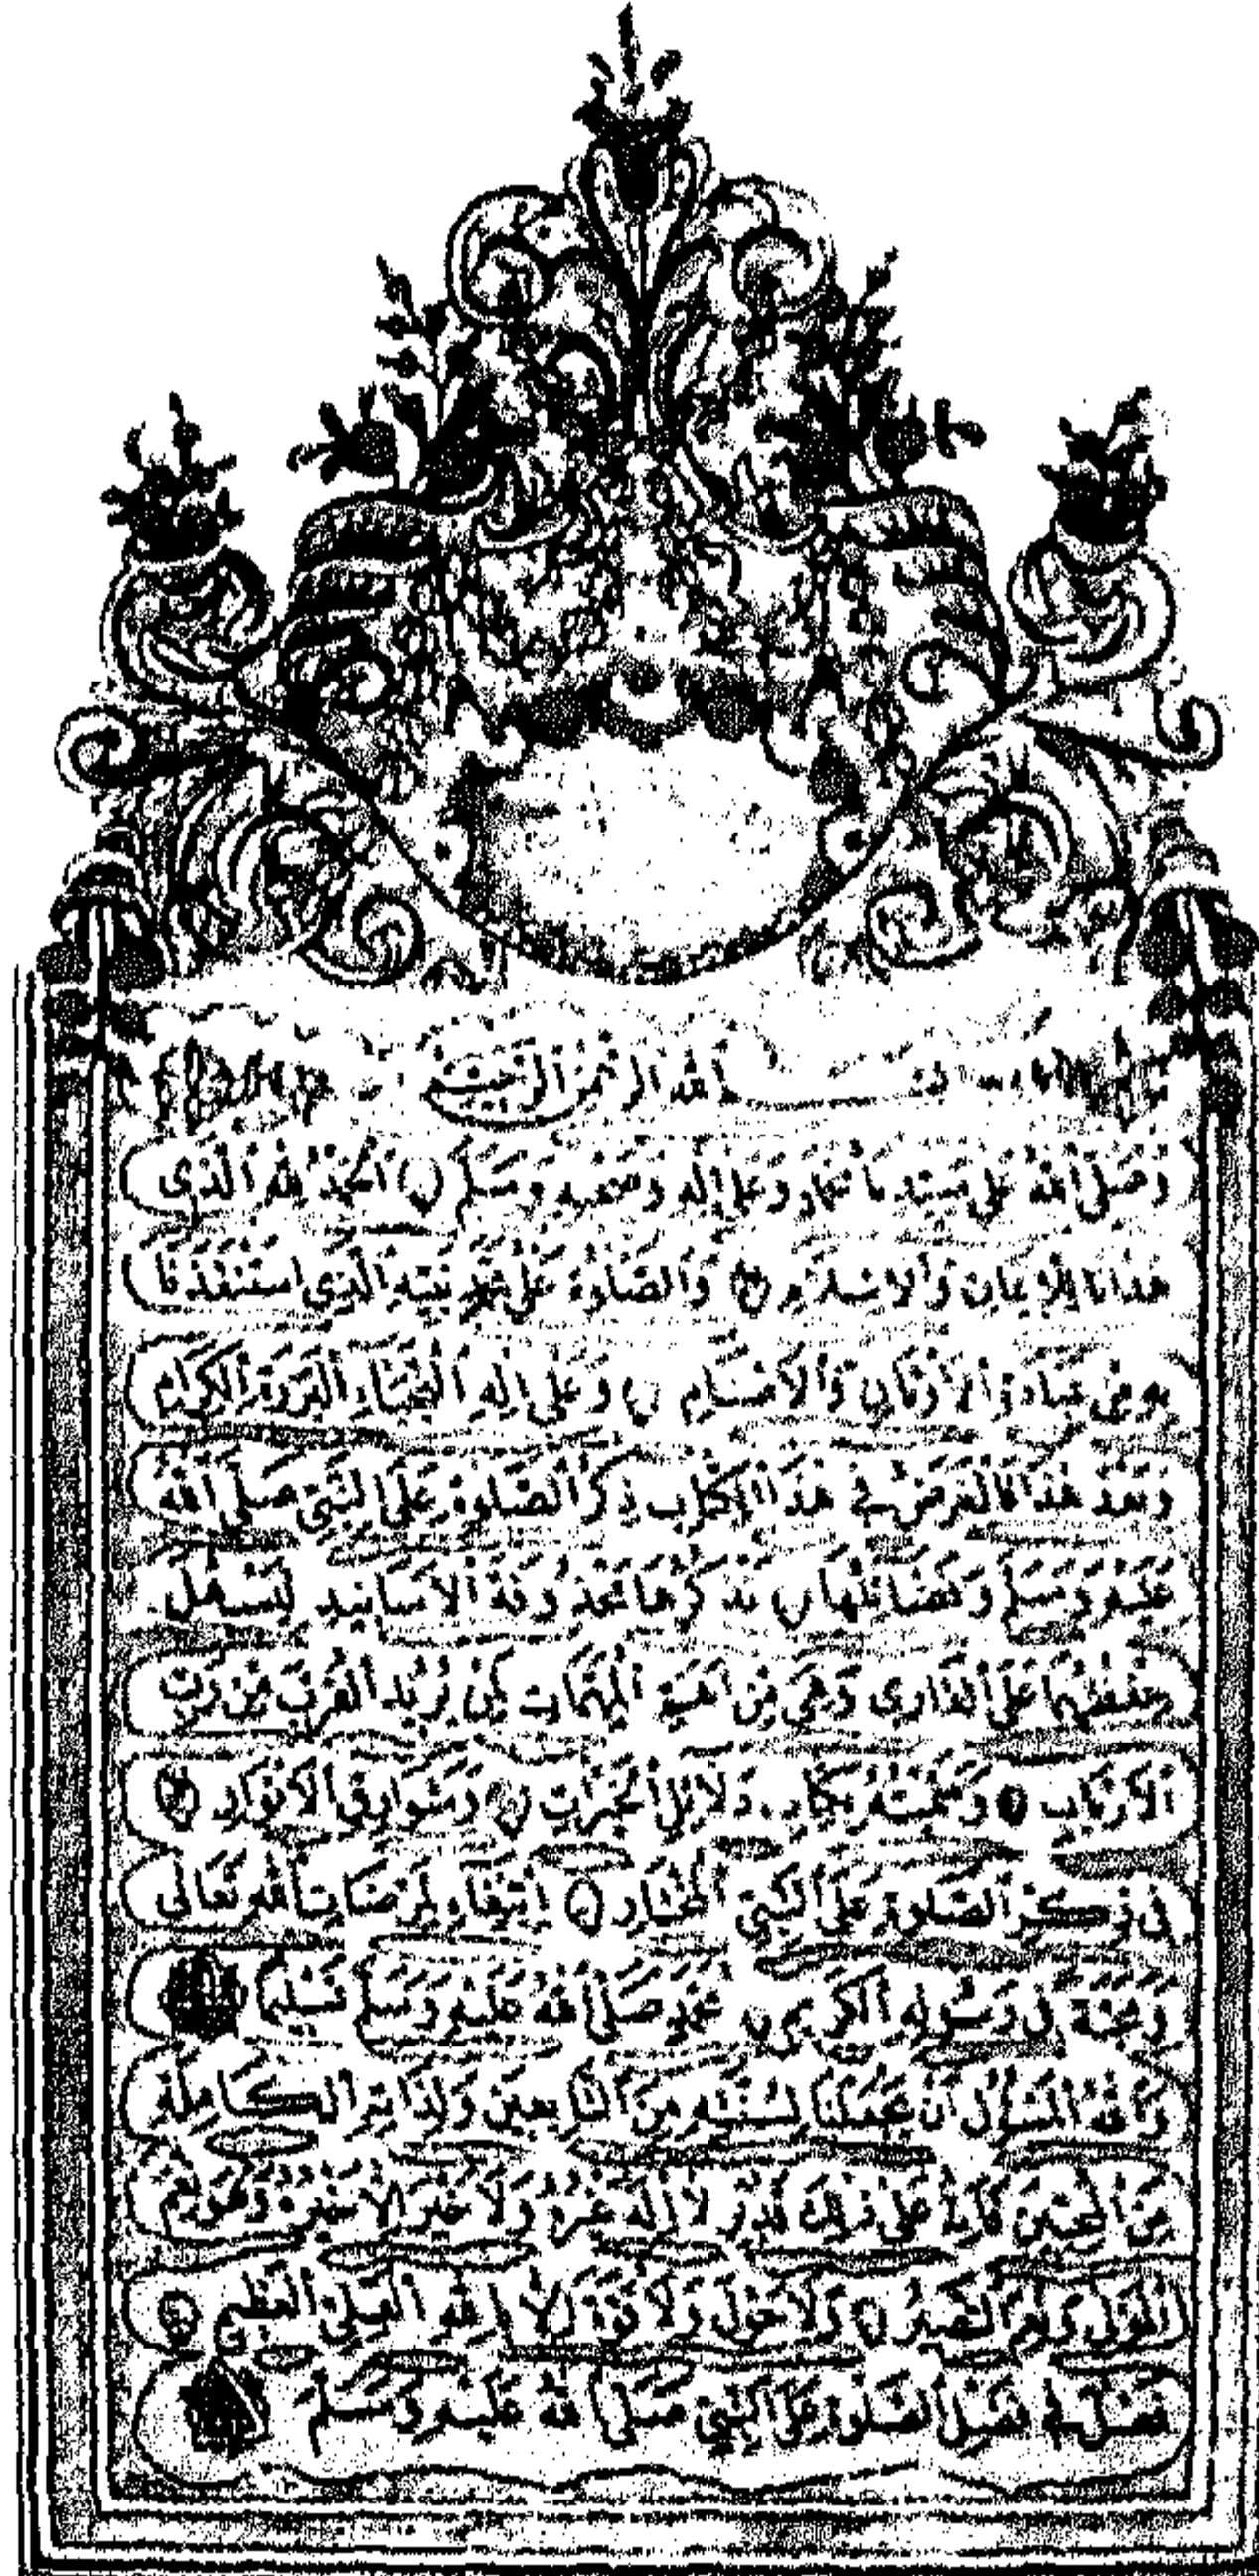 بسم الله الرحمن الرحيم
وَصَلَّى اللهُ عَلَى سَيِّدِنَا مُحَمَّدٍ وَعَلَى اٰلِهِ وَصَحْبِهِ وَسَلَّمَ اَلْحَمْدُ لِلهِ الَّذِي
هَدَانَا لِلْاِيمَانِ وَالْاِسْلَامِ وَالصَّلٰوةُ عَلَى مُحَمَّدٍ نَبِيِّهِ الَّذِي اسْتَنْقَذَنَا
بِهِ مِنْ عِبَادَةِ الْاَوْثَانِ وَالْاَصْنَامِ وَعَلَى اٰلِهِ النُّجَبَاءِ الْبَرَرَةِ الْكِرَامِ
وَبَعْدَ هٰذَا فَالْغَرَضُ فِي هٰذَا الْكِتَابِ ذِكْرُ الصَّلٰوةِ عَلَى النَّبِيِّ صَلَّى اللهُ
عَلَيْهِ وَسَلَّمَ وَفَضَائِلِهَا نَذْكُرُهَا مَحْذُوفَةَ الْاَسَانِيدِ لِيَسْهُلَ
حِفْظُهَا عَلَى الْقَارِي وَهِيَ مِنْ اَهَمِّ الْمُهِمَّاتِ لِمَنْ يُرِيدُ الْقُرْبَ مِنْ رَبِّ
الْاَرْبَابِ وَسَمَّيْتُهُ بِكِتَابِ دَلَائِلِ الْخَيْرَاتِ وَشَوَارِقِ الْاَنْوَارِ
فِي ذِكْرِ الصَّلٰوةِ عَلَى النَّبِيِّ الْمُخْتَارِ اِبْتِغَاءً لِمَرْضَاتِ اللهِ تَعَالَى
وَمَحَبَّةً فِي رَسُولِهِ الْكَرِيمِ مُحَمَّدٍ صَلَّى اللهُ عَلَيْهِ وَسَلَّمَ تَسْلِيمًا
وَاللهُ الْمَسْؤُلُ اَنْ يَجْعَلَنَا لِسُنَّتِهِ مِنَ التَّابِعِينَ وَلِذَاتِهِ الْكَامِلَةِ
مِنَ الْمُحِبِّينَ فَاِنَّهُ عَلَى ذٰلِكَ قَدِيرٌ لَا اِلٰهَ غَيْرُهُ وَلَا خَيْرَ اِلَّا خَيْرُهُ وَهُوَ نِعْمَ
الْمَوْلَى وَنِعْمَ النَّصِيرُ وَلَا حَوْلَ وَلَا قُوَّةَ اِلَّا بِاللهِ الْعَلِيِّ الْعَظِيمِ
فَصْلٌ فِي فَضْلِ الصَّلٰوةِ عَلَى النَّبِيِّ صَلَّى اللهُ عَلَيْهِ وَسَلَّمَ